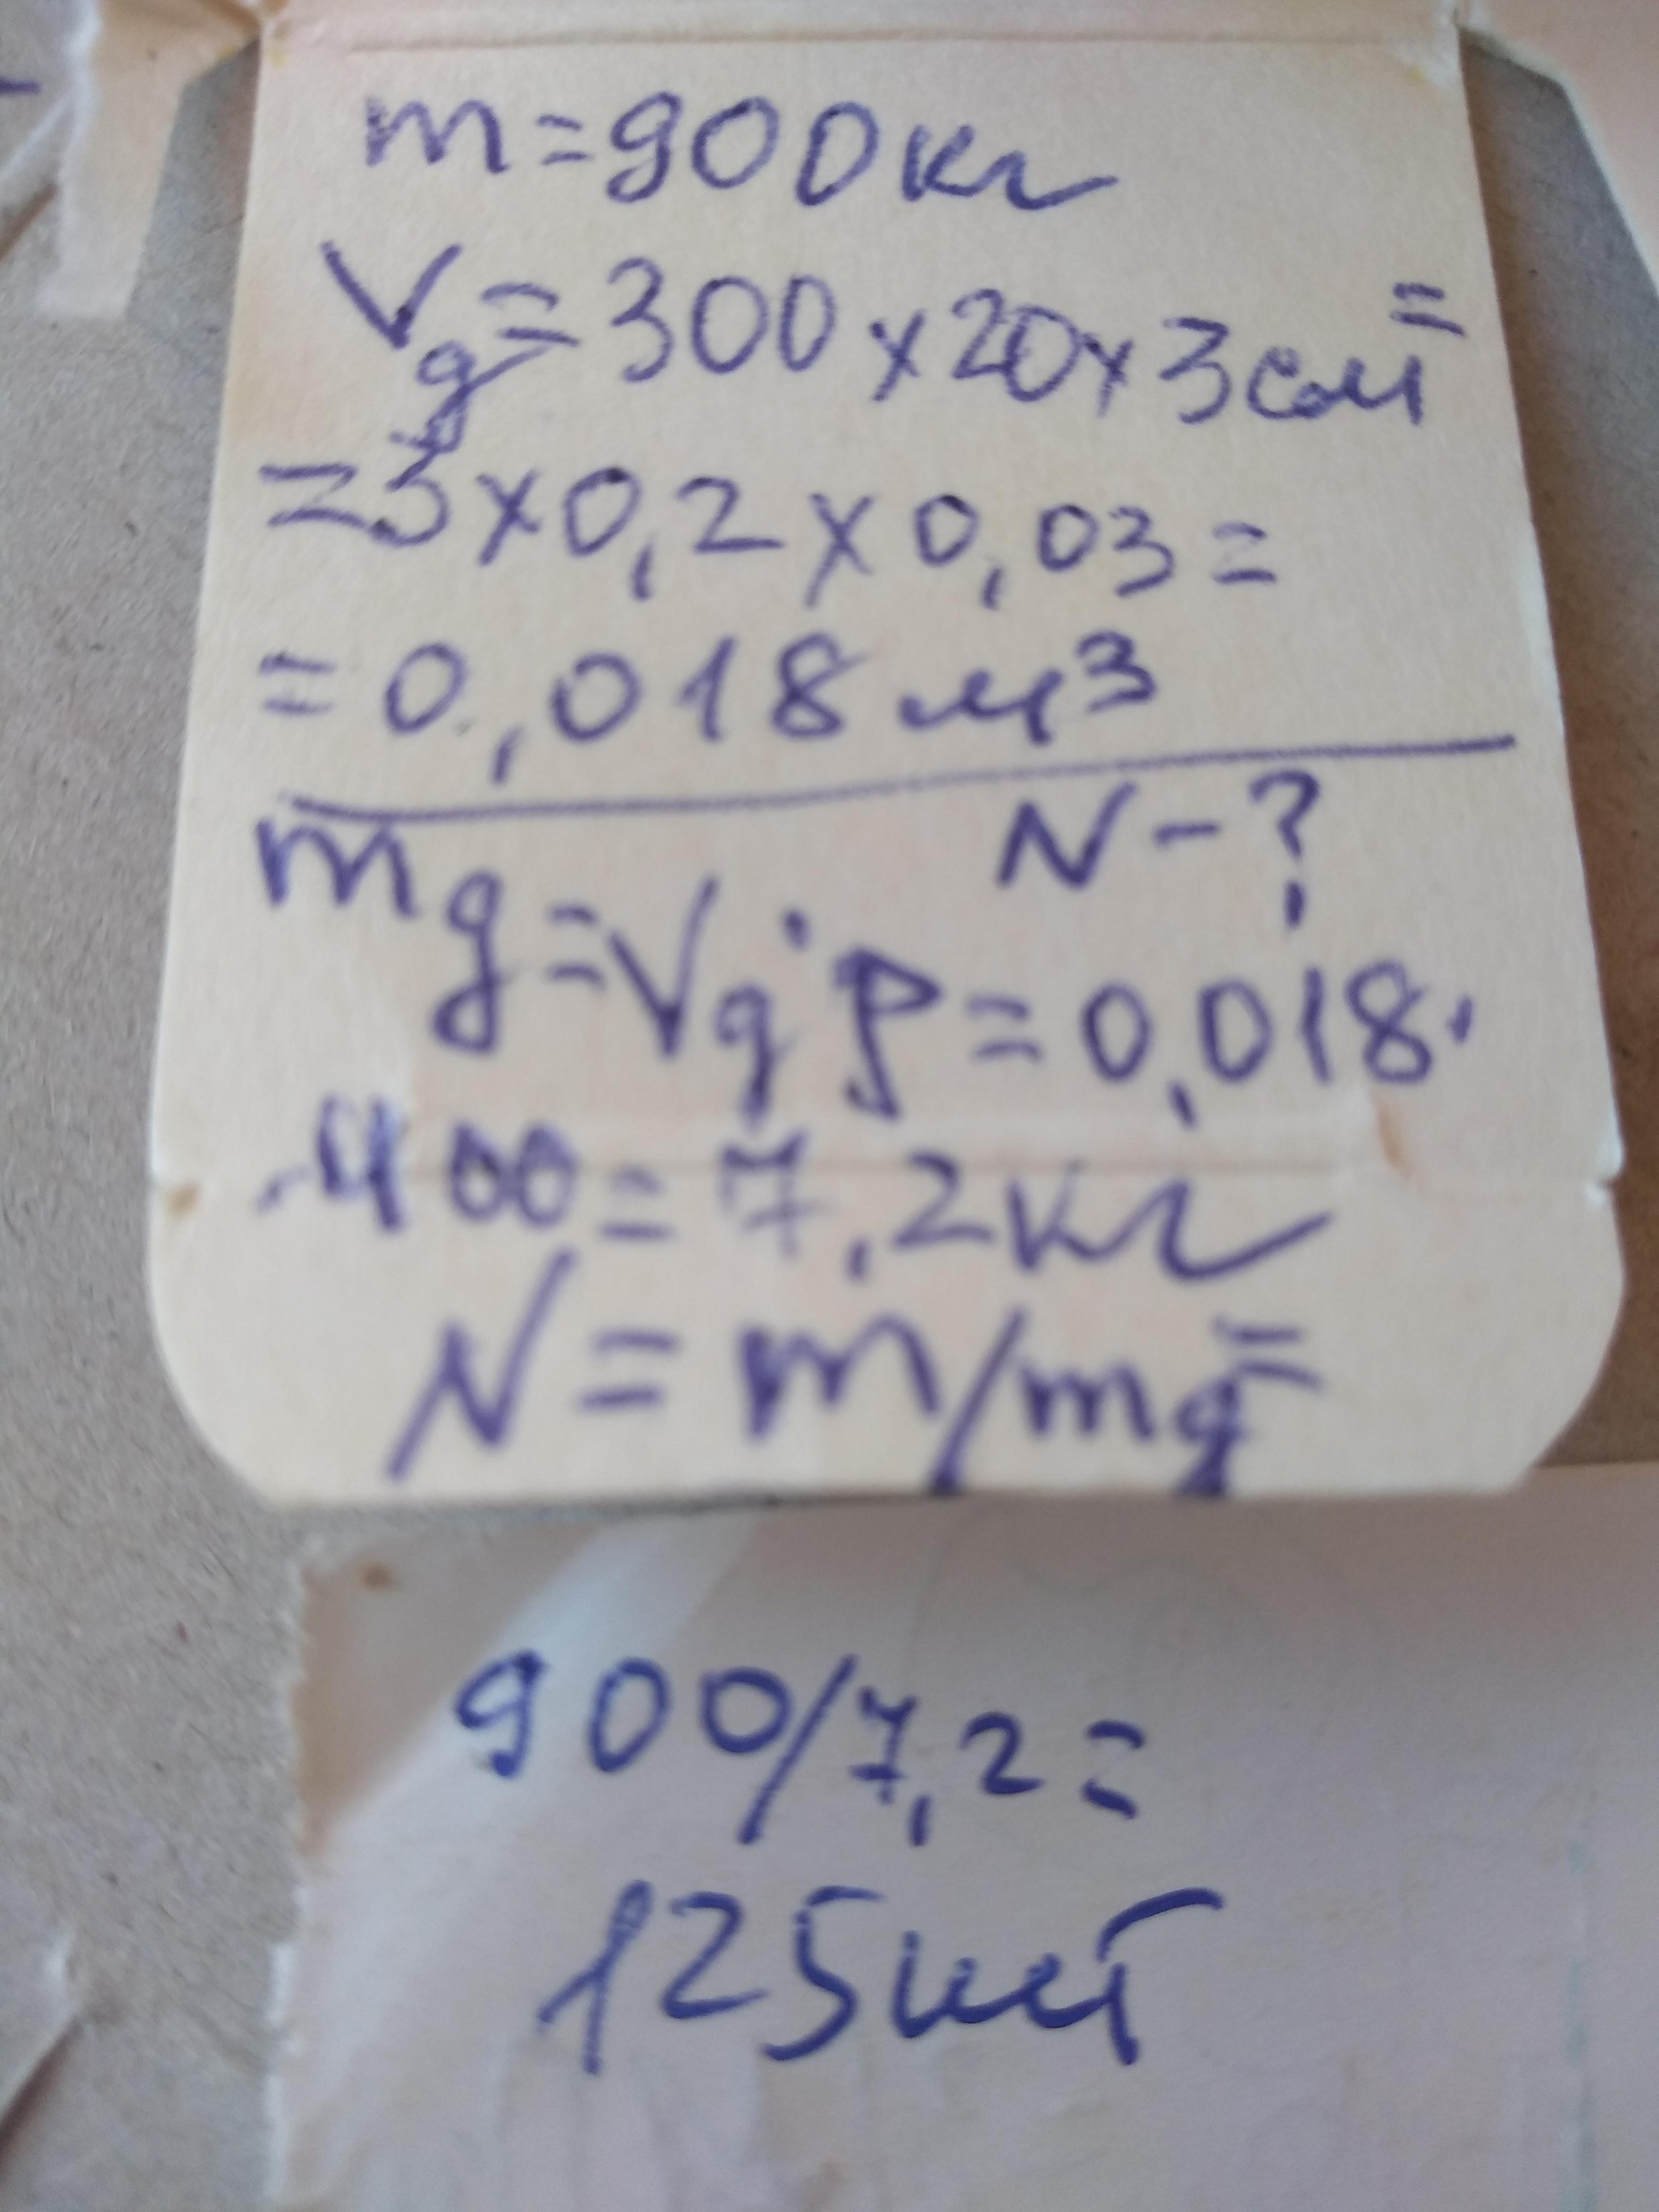 m=900кг
Vg=300x20x3см=
=3x0,2x0,03=
=0,018м³
N-?
mg=Vg·ρ=0,018·
·400=7,2кг
N=m/mg=
900/7,2=
125шт